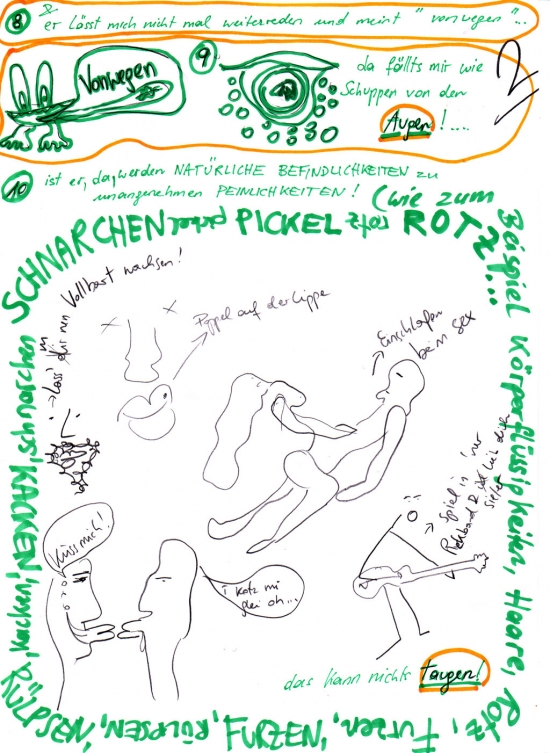 8
er lässt mich nicht mal weiterreden und meint "vonwegen"...
Vonwegen
9
da fällts mir wie
Schuppen von den
Augen!....
2
10 ist er, da, werden NATÜRLICHE BEFINDLICHKEITEN zu
unangenehmen PEINLICHKEITEN!
(wie zum
Beispiel Körperflüssigkeiten, Haare, Rotz, Furzen
SCHNARCHEN PICKEL rotz ROTZ...
Lass' dir nen Vollbart wachsen!
Poppel auf der Lippe
Einschlafen
beim Sex
Spiel in 'ner
Küss mich!
i kotz mi
glei oh...
RÜLPSEN, kacken, KACKEN, schnarchen
RÜLPSEN, FURZEN, Furzen
das kann nichts taugen!